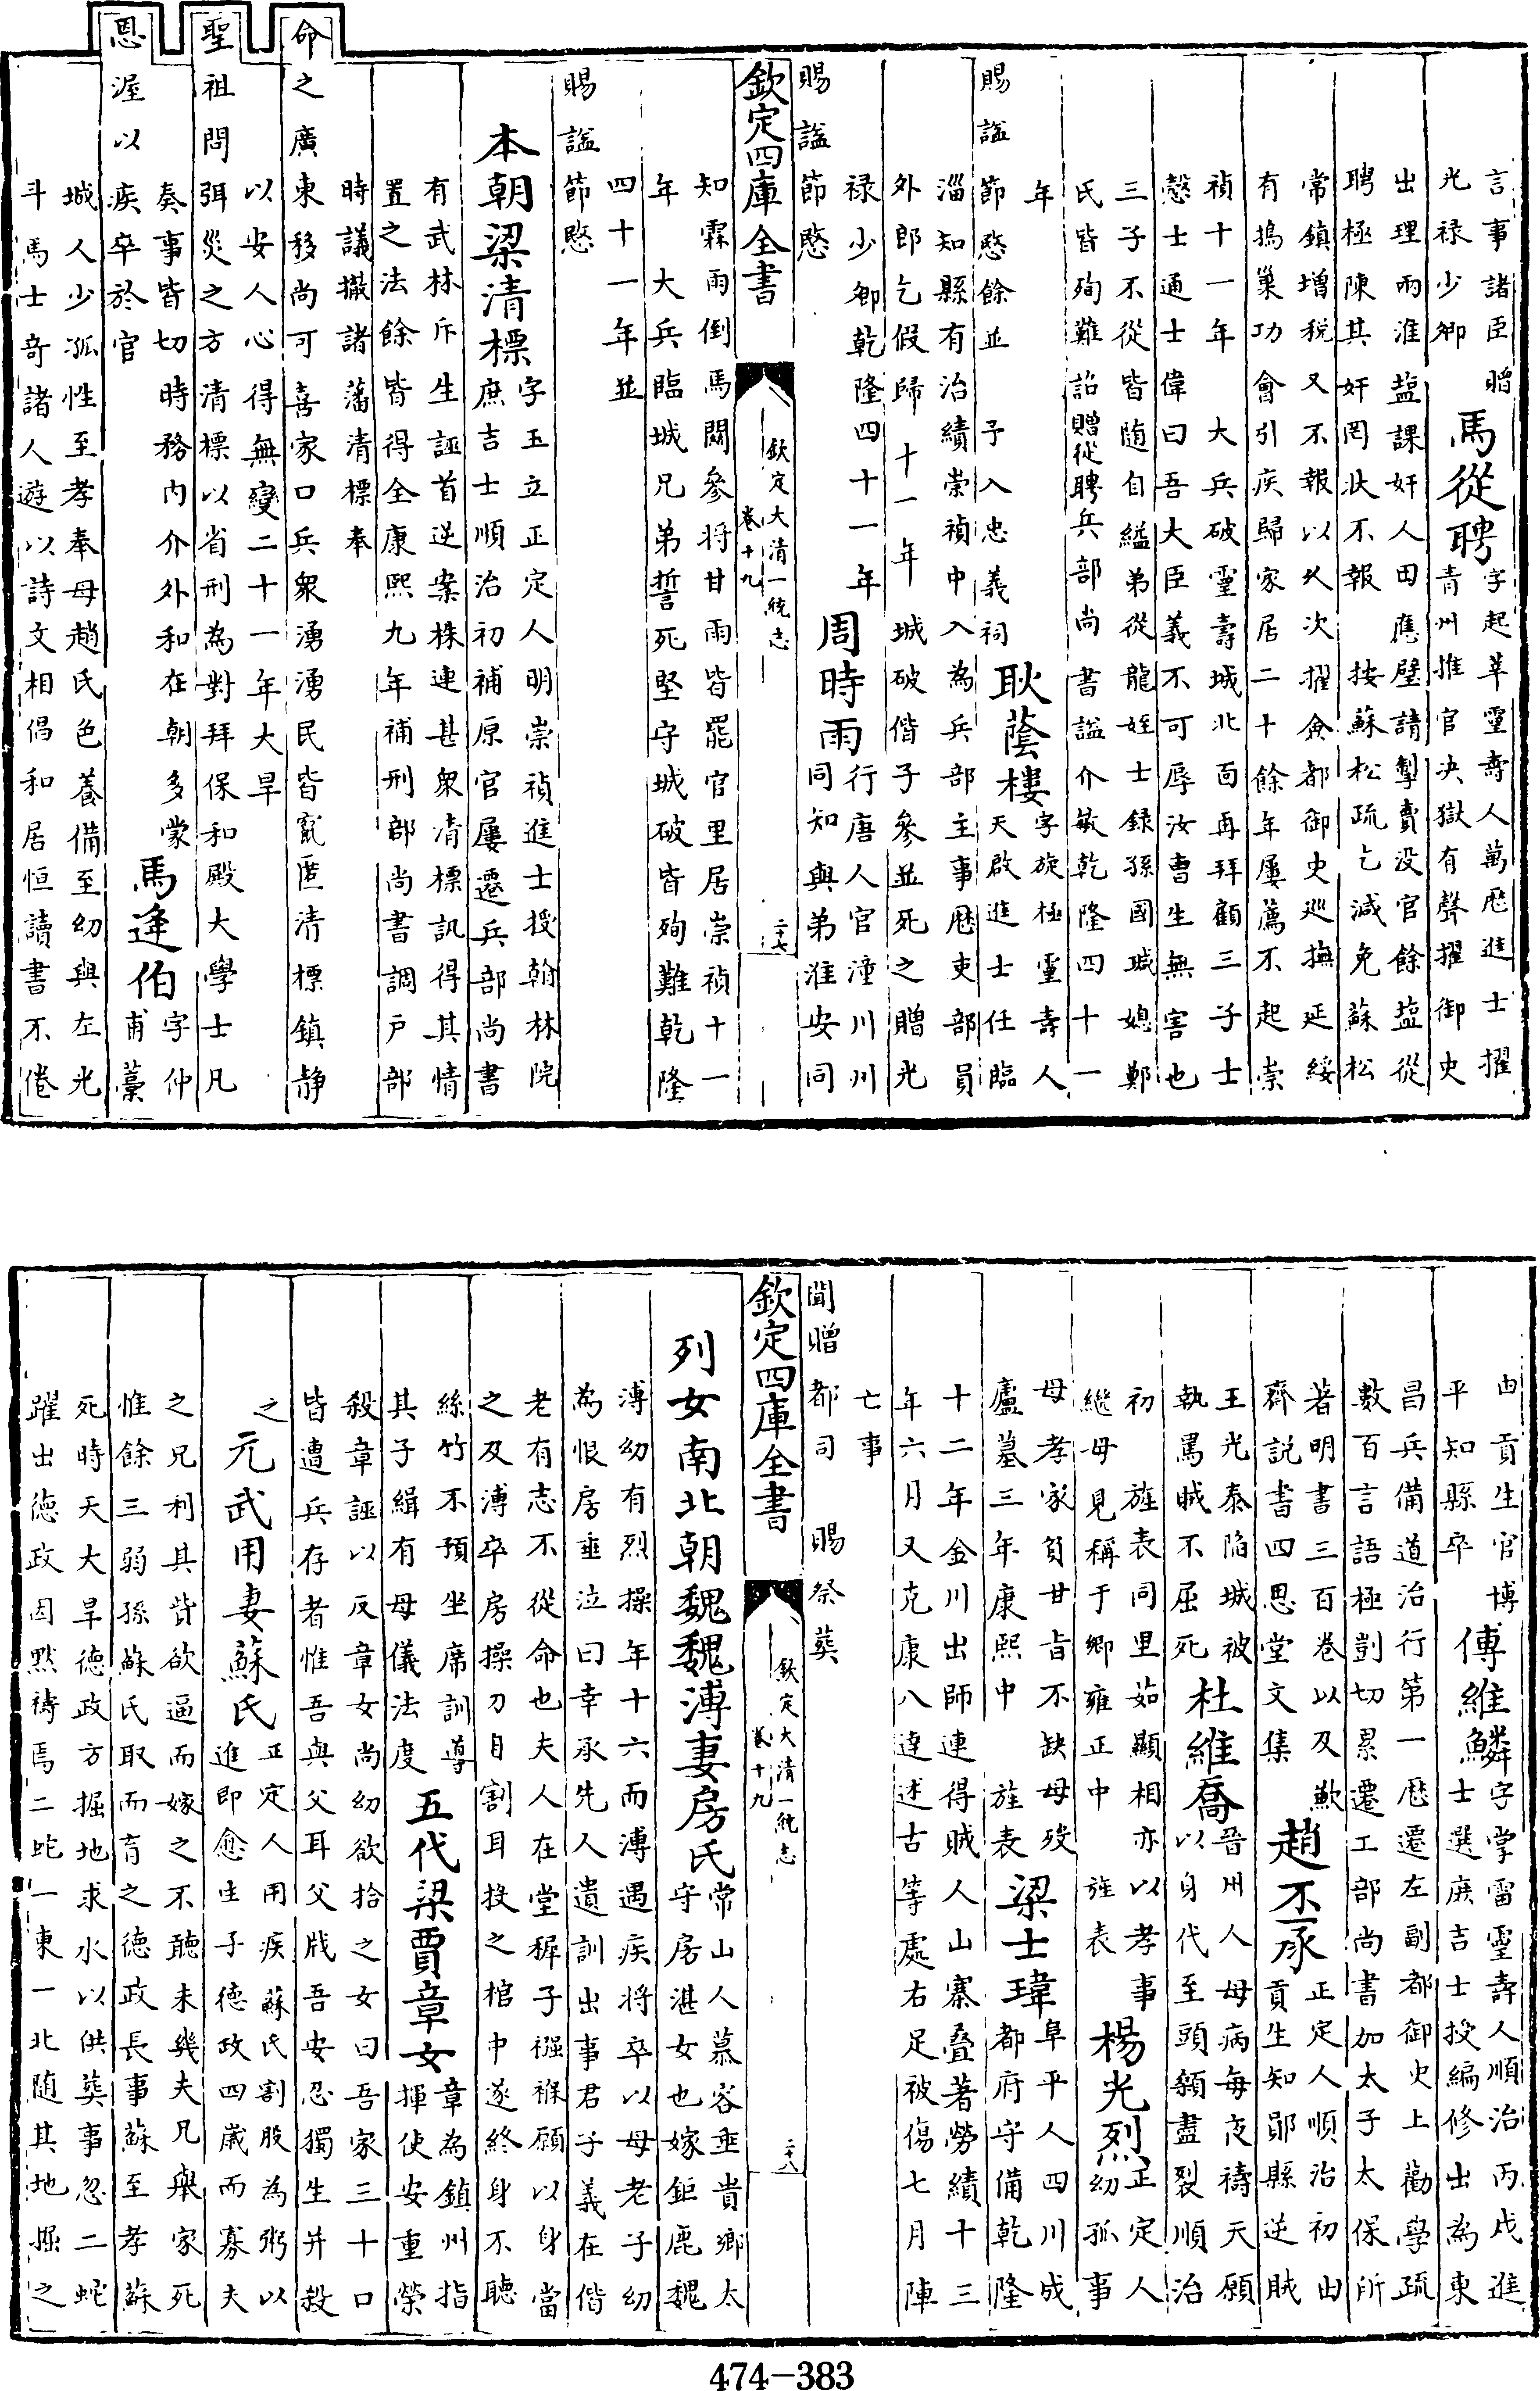 言事諸臣贈
光禄少卿
馬從聘
字起莘靈壽人萬厯進士擢
青州推官决獄有聲擢御史
出理兩淮盐課奸人田應璧請掣賣没官餘盐從
聘極陳其奸罔狀不報 按蘇松疏乞減免蘇松
常鎮增税又不報以久次擢僉都御史巡撫延綏
有搗巢功會引疾歸家居二十餘年屢薦不起崇
禎十一年 大兵破靈壽城北面再拜顧三子士
慤士通士偉曰吾大臣義不可辱汝曹生無害也
三子不從皆随自縊弟從龍姪士録孫國珹媳鄭
氏皆殉難詔贈從聘兵部尚書諡介敏乾隆四十一
年
賜諡節愍餘並 予入忠義祠
耿蔭樓
字旋極靈壽人
天啟進士任臨
淄知縣有治績崇禎中入為兵部主事厯吏部員
外郎乞假歸 十一年 城破偕子參並死之贈光
禄少卿乾隆四十一年
賜諡節愍
周時雨
行唐人官潼川州
同知與弟淮安同
欽定四庫全書
欽定大清一統志
卷十九
二十七
知霖雨倒馬關參將甘雨皆罷官里居崇禎十一
年 大兵臨城兄弟誓死堅守城破皆殉難乾隆
四十一年並
賜諡節愍
本朝梁清標
字玉立正定人明崇禎進士授翰林院
庶吉士順治初補原官屢遷兵部尚書
有武林斥生誣首逆案株連甚衆清標訊得其情
置之法餘皆得全康熙九年補刑部尚書調户部
時議撤諸藩清標奉
命之廣東移尚可喜家口兵衆湧湧民皆竄匿清標鎮静
以安人心得無變二十一年大旱
聖祖問弭災之方清標以省刑為對拜保和殿大學士凡
奏事皆切時務内介外和在朝多蒙
恩渥以疾卒於官
馬逢伯
字仲
甫藁
城人少孤性至孝奉母趙氏色養備至幼與左光
斗馬士奇諸人遊以詩文相倡和居恒讀書不倦
由貢生官博
平知縣卒
傅維鱗
字掌雷靈壽人順治丙戌進
士選庶吉士授編修出為東
昌兵備道治行第一厯遷左副都御史上勸學疏
數百言語極剴切累遷工部尚書加太子太保所
著明書三百卷以及歉
齊説書四思堂文集
趙丕承
正定人順治初由
貢生知鄖縣逆賊
王光泰陷城被
執罵賊不屈死
杜維喬
晋州人母病每夜禱天願
以身代至頭顙盡裂順治
初 旌表同里茹顯相亦以孝事
繼母見稱于鄉雍正中 旌表
楊光烈
正定人
幼孤事
母孝家貧甘旨不缺母歿
廬墓三年康熙中 旌表
梁士瑋
阜平人四川成
都府守備乾隆
十二年金川出師連得賊人山寨叠著勞績十三
年六月又克康八達述古等處右足被傷七月陣
亡事
聞贈都司 賜祭葬
欽定四庫全書
欽定大清一統志
卷十九
二十八
列女南北朝魏魏溥妻房氏
常山人慕容垂貴鄉太
守房湛女也嫁鉅鹿魏
溥幼有烈操年十六而溥遇疾將卒以母老子幼
為恨房垂泣曰幸承先人遺訓出事君子義在偕
老有志不從命也夫人在堂穉子襁褓願以身當
之及溥卒房操刀自割耳投之棺中遂終身不聽
絲竹不預坐席訓導
其子緝有母儀法度
五代梁賈章女
章為鎮州指
揮使安重榮
殺章誣以反章女尚幼欲拾之女曰吾家三十口
皆遭兵存者惟吾與父耳父戕吾安忍獨生并殺
之
元武用妻蘇氏
正定人用疾蘇氏割股為粥以
進即愈生子德政四歲而寡夫
之兄利其貲欲逼而嫁之不聽未幾夫兄舉家死
惟餘三弱孫蘇氏取而育之德政長事蘇至孝蘇
死時天大旱德政方掘地求水以供葬事忽二蛇
躍出德政因默禱焉二蛇一東一北随其地掘之
474-383